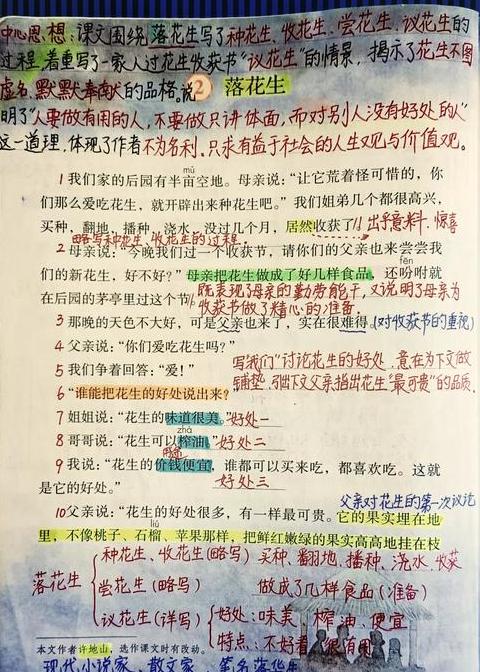 中心思想：课文围绕落花生写了种花生、收花生、尝花生、议花生的
过程，着重写了一家人过花生收获节“议花生”的情景，揭示了花生不图
虚名、默默奉献的品格。说
2 落花生
明了“人要做有用的人，不要做只讲体面，而对别人没有好处的人”
这一道理，体现了作者不为名利，只求有益于社会的人生观与价值观。
mǔ
1 我们家的后园有半亩空地。母亲说：“让它荒着怪可惜的，你
们那么爱吃花生，就开辟出来种花生吧。”我们姐弟几个都很高兴，
买种，翻地，播种，浇水，没过几个月，居然收获了！
出乎意料、惊喜
略写种花生、收花生的过程。
2 母亲说：“今晚我们过一个收获节，请你们的父亲也来尝尝我
fēn
们的新花生，好不好？”母亲把花生做成了好几样食品，还吩咐就
既表现了母亲的勤劳能干，又说明了母亲为
在后园的茅亭里过这个节。
收获节做了精心的准备。
3 那晚的天色不大好，可是父亲也来了，实在很难得。
(对收获节的重视)
4 父亲说：“你们爱吃花生吗？”
5 我们争着回答：“爱！”
写我们“讨论花生的好处，意在为下文做
铺垫，引出下文父亲指出花生“最可贵”的品质。
6 “谁能把花生的好处说出来？”
7 姐姐说：“花生的味道很美。”
好处一
zhá
8 哥哥说：“花生可以榨油。”
好处二
9 我说：“花生的价钱便宜，谁都可以买来吃，都喜欢吃。这就
是它的好处。”
好处三
父亲对花生的第一次议论
10 父亲说：“花生的好处很多，有一样最可贵。它的果实埋在地
liú
里，不像桃子、石榴、苹果那样，把鲜红嫩绿的果实高高地挂在枝
落花生
种花生、收花生(略写) 买种、翻地、播种、浇水、收获
尝花生(略写) 做成了几样食品(准备)
议花生(详写)
好处：味美 榨油 便宜
特点：不好看 很有用
本文作者许地山，选作课文时有改动。
现代小说家、散文家、笔名落华生